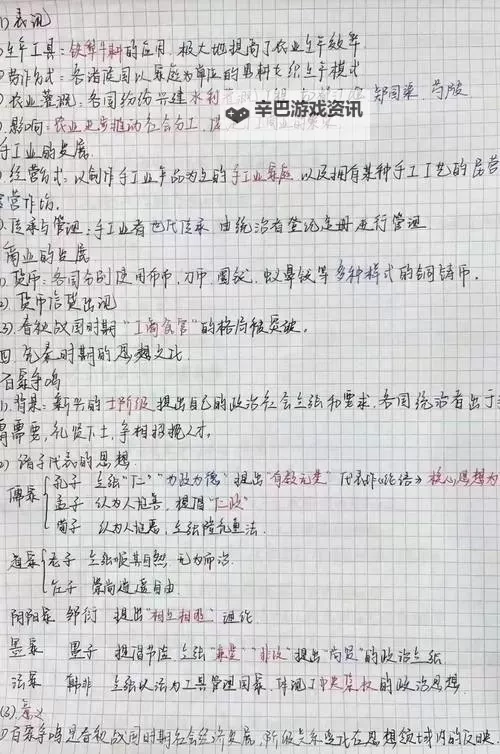 1)表现
①生产工具：铁犁牛耕的应用，极大地提高了农业生产效率
②劳作方式：各诸侯国以家庭为单位的男耕女织生产模式
③农业灌溉：各国纷纷兴建水利 郑国渠、芍陂
④影响：农业进步推动社会分工，
辛巴游戏资讯
手工业的发展
①经营方式：以制作手工业产品为主的手工业家庭，以及拥有某种手工工艺的
营作坊。
②传承与管理：手工业者世代传承，由统治者登记造册进行管理
商业的发展
①货币：各国分别使用布币、刀币、圜钱、蚁鼻钱等多种样式的铜铸币。
2)货币信贷出现
(3)春秋战国时期"工商食官"的格局被突破。
四.先秦时期的思想文化
百家争鸣
(1)背景：新兴的士阶级提出自己的政治社会主张和要求，各国统治者出于
需需要，礼贤下士，争相招揽人才。
2)诸子代表的思想
儒家 孔子 主张"仁""为政为德"提出"有教无类" 代表作《论语》核心思想为
孟子 认为人性善，提倡"仁政"
荀子 认为人性恶，主张隆礼重法
道家 老子 主张顺其自然，无为而治
庄子 崇尚逍遥自由
阴阳家 邹衍 提出"相生相胜"理论
墨家 墨子 提倡节俭，主张"兼爱""非攻"提出"尚贤"的政治主张
法家 韩非 主张以法为工具管理国家，体现了中央集权的政治思想
(3)意义
①百家争鸣是春秋战国时期社会经济发展、阶级关系变化在思想领域内的反映